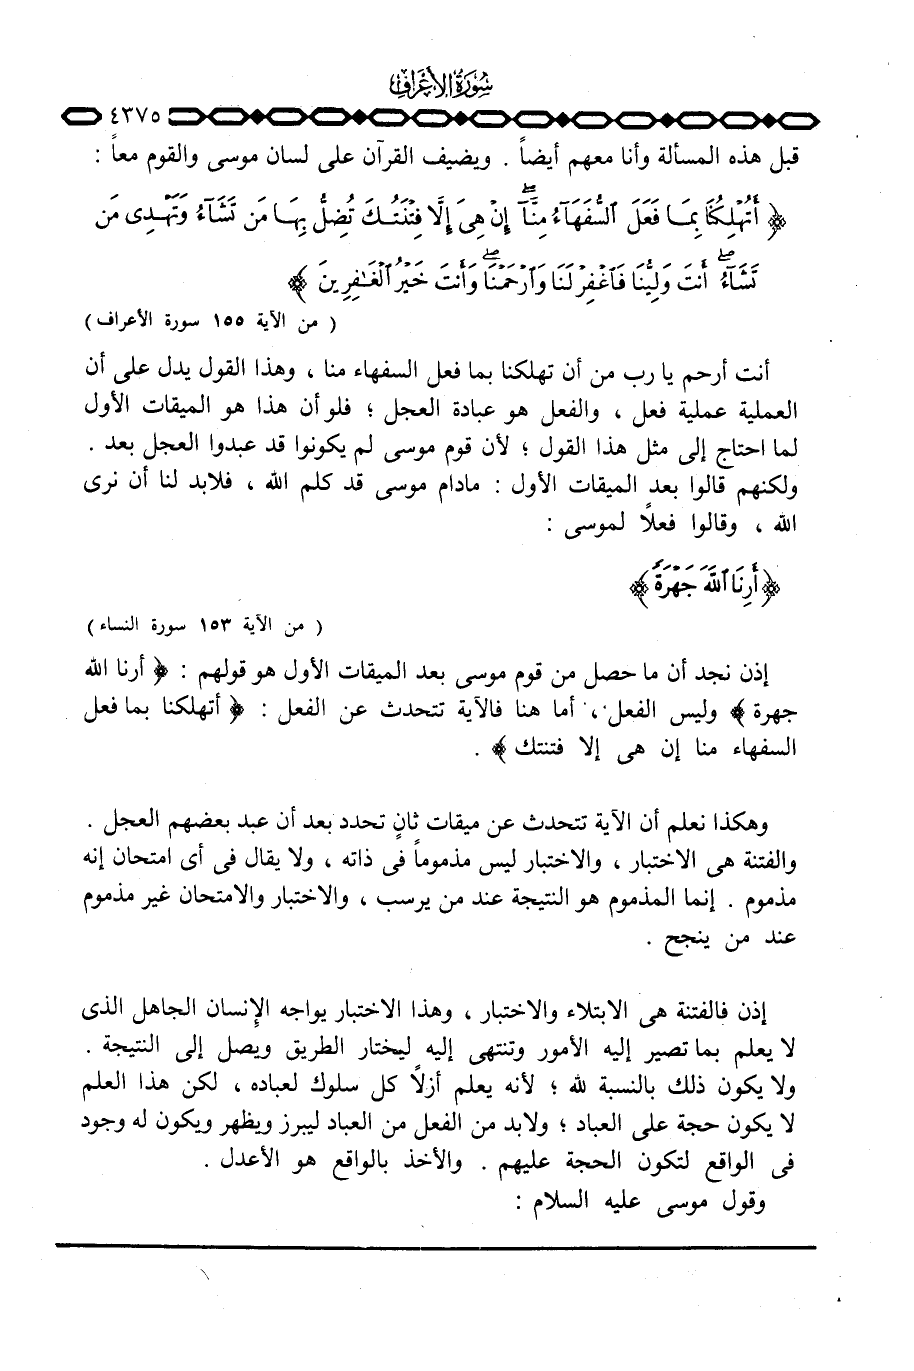 سُورَةُ الأَعْرَافِ
٤٣٧٥
قبل هذه المسألة وأنا معهم أيضاً . ويضيف القرآن على لسان موسى والقوم معاً :
﴿ أَتُهْلِكُنَا بِمَا فَعَلَ ٱلسُّفَهَآءُ مِنَّآ ۖ إِنْ هِىَ إِلَّا فِتْنَتُكَ تُضِلُّ بِهَا مَن تَشَآءُ وَتَهْدِى مَن
تَشَآءُ ۖ أَنتَ وَلِيُّنَا فَٱغْفِرْ لَنَا وَٱرْحَمْنَا ۖ وَأَنتَ خَيْرُ ٱلْغَـٰفِرِينَ ﴾
( من الآية ١٥٥ سورة الأعراف )
أنت أرحم يا رب من أن تهلكنا بما فعل السفهاء منا ، وهذا القول يدل على أن
العملية عملية فعل ، والفعل هو عبادة العجل ؛ فلو أن هذا هو الميقات الأول
لما احتاج إلى مثل هذا القول ؛ لأن قوم موسى لم يكونوا قد عبدوا العجل بعد .
ولكنهم قالوا بعد الميقات الأول : مادام موسى قد كلم الله ، فلابد لنا أن نرى
الله ، وقالوا فعلاً لموسى :
﴿ أَرِنَا ٱللَّهَ جَهْرَةً ﴾
( من الآية ١٥٣ سورة النساء )
إذن نجد أن ما حصل من قوم موسى بعد الميقات الأول هو قولهم : ﴿ أرنا الله
جهرة ﴾ وليس الفعل ، أما هنا فالآية تتحدث عن الفعل : ﴿ أتهلكنا بما فعل
السفهاء منا إن هى إلا فتنتك ﴾ .
وهكذا نعلم أن الآية تتحدث عن ميقات ثانٍ تحدد بعد أن عبد بعضهم العجل .
والفتنة هى الاختبار ، والاختبار ليس مذموماً فى ذاته ، ولا يقال فى أى امتحان إنه
مذموم . إنما المذموم هو النتيجة عند من يرسب ، والاختبار والامتحان غير مذموم
عند من ينجح .
إذن فالفتنة هى الابتلاء والاختبار ، وهذا الاختبار يواجه الإنسان الجاهل الذى
لا يعلم بما تصير إليه الأمور وتنتهى إليه ليختار الطريق ويصل إلى النتيجة .
ولا يكون ذلك بالنسبة لله ؛ لأنه يعلم أزلاً كل سلوك لعباده ، لكن هذا العلم
لا يكون حجة على العباد ؛ ولابد من الفعل من العباد ليبرز ويظهر ويكون له وجود
فى الواقع لتكون الحجة عليهم . والأخذ بالواقع هو الأعدل .
وقول موسى عليه السلام :